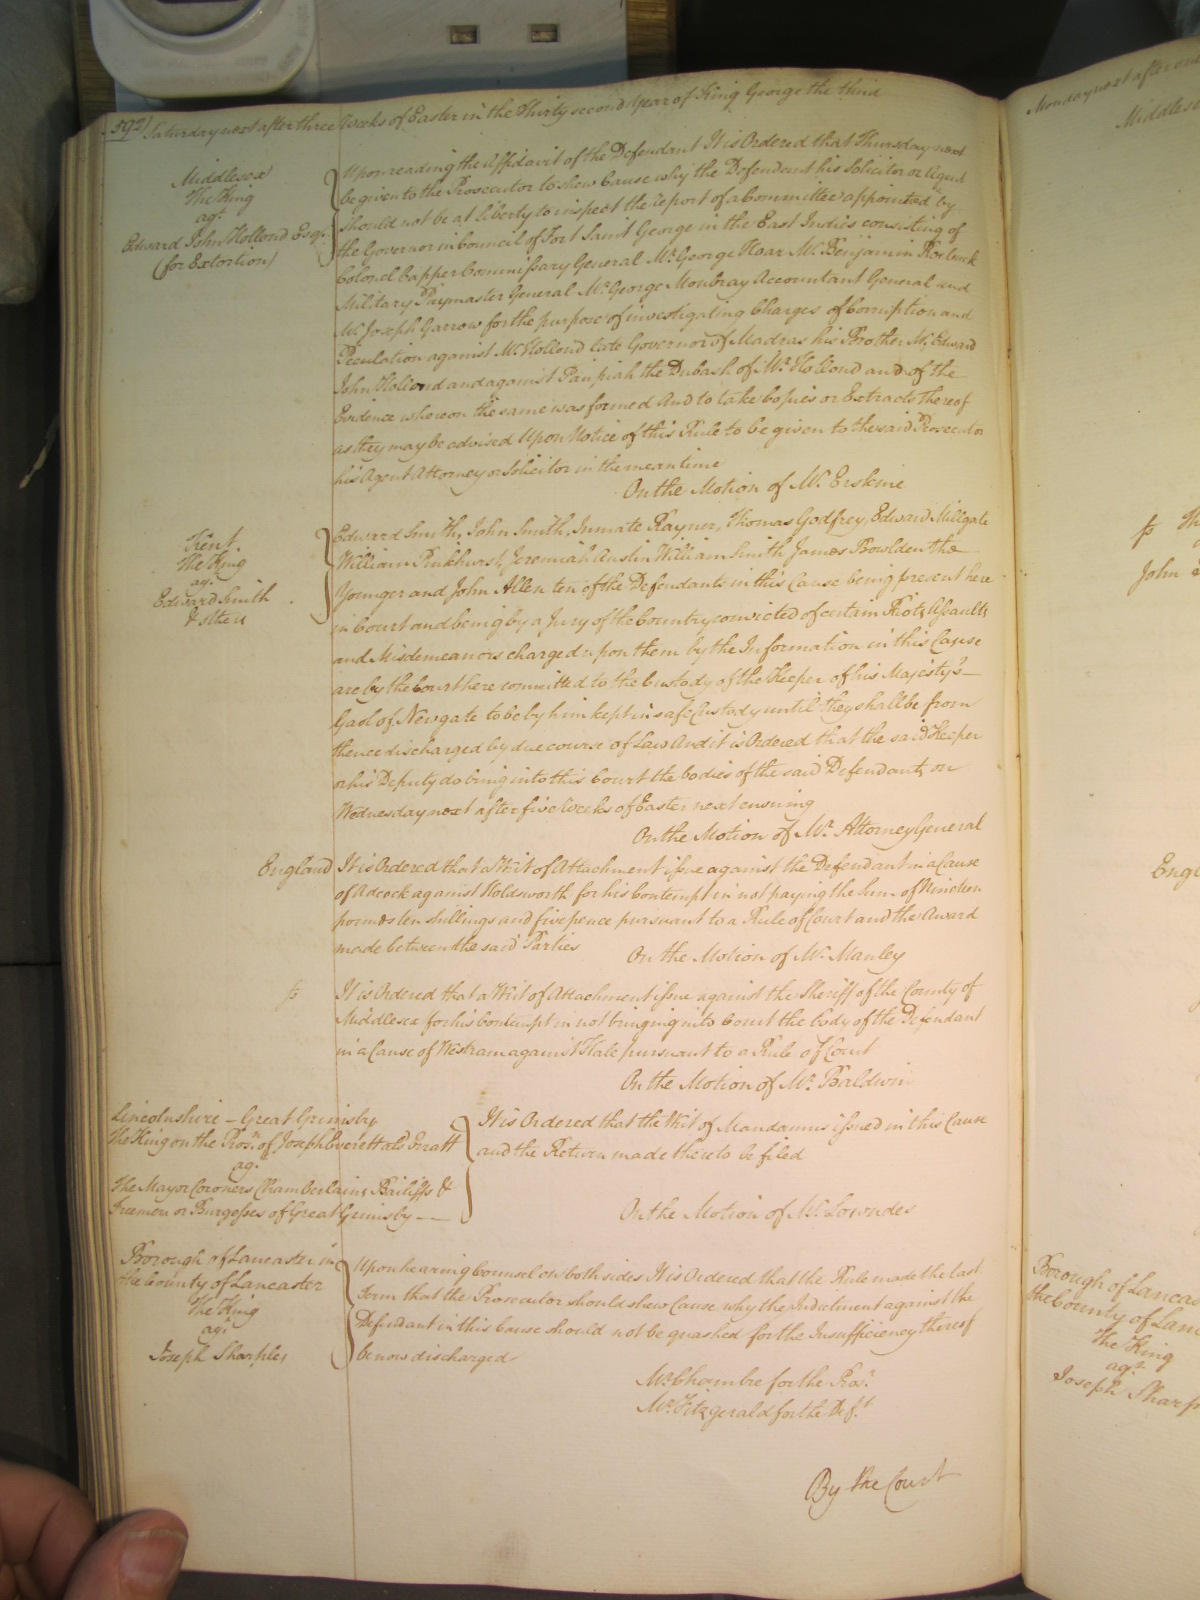 592) Saturday next after three Weeks of Easter in the Thirty second Year of King George the third
Middlesex
The King
agt.
Edward John Hollond Esqr.
(for Extortion)
Upon reading the Affidavit of the Defendant It is Ordered that Thursday next
be given to the Prosecutor to shew Cause why the Defendent his Solicitor or Agent
should not be at liberty to inspect the Report of a Committee appointed by
the Governor in Council of Fort Saint George in the East Indies consisting of
Colonel Capper Commissary General Mr. George Hoar Mr. Benjamin Roebuck
Military Paymaster General Mr. George Moubray Accountant General and
Mr. Joseph Garrow for the purpose of investigating Charges of Corruption and
Peculation against Mr. Hollond late Governor of Madras his Brother Mr. Edward
John Hollond and against Paupiah the Dubash of Mr. Hollond and of the
Evidence whereon the same was formed And to take Copies or Extracts thereof
as they may be advised Upon Notice of this Rule to be given to the said Prosecutor
his Agent Attorney or Solicitor in the mean time
On the Motion of Mr. Erskine
Kent.
The King
agt.
Edward Smith
& others
Edward Smith, John Smith, Inmate Rayner, Thomas Godfrey, Edward Millgate
William Pinkhurst, Jeremiah Austin William Smith James Bowlden the
Younger and John Allen ten of the Defendants in this Cause being present here
in Court and being by a Jury of the Country convicted of certain Riots Assaults
and Misdemeanors charged upon them by the Information in this Cause
are by the Court here committed to the Custody of the Keeper of his Majesty's
Gaol of Newgate to be by him kept in safe Custody until they shall be from
thence discharged by due course of Law And it is Ordered that the said Keeper
or his Deputy do bring into this Court the bodies of the said Defendants on
Wednesday next after five Weeks of Easter next ensuing
On the Motion of Mr. Attorney General
England
It is Ordered that a Writ of Attachment issue against the Defendant in a Cause
of Adcock against Holdsworth for his Contempt in not paying the Sum of Nineteen
pounds ten shillings and five pence pursuant to a Rule of Court and the Award
made between the said Parties
On the Motion of Mr. Manley
It is Ordered that a Writ of Attachment issue against the Sheriff of the County of
Middlesex for his Contempt in not bringing into Court the body of the Defendant
in a Cause of Westram against Hale pursuant to a Rule of Court
On the Motion of Mr. Baldwin
Lincolnshire – Great Grimsby
The King on the Prosn. of Joseph Everett als Evratt
agt.
The Mayor Coroners Chamberlains Bailiffs &
Freemen or Burgesses of Great Grimsby
It is Ordered that the Writ of Mandamus issued in this Cause
and the Return made thereto be filed
On the Motion of Mr. Lowndes
Borough of Lancaster in
the County of Lancaster
The King
agt.
Joseph Sharples
Upon hearing Counsel on both sides It is Ordered that the Rule made the last
Term that the Prosecutor should shew Cause why the Indictment against the
Defendant in this Cause should not be quashed for the Insufficiency thereof
be now discharged
Mr. Chambre for the Prosr.
Mr. Fitzgerald for the Deft.
By the Court
Monday next after
Middlesex
John
Engl
Borough of Lancas
the County of Lanc
The King
agt.
Joseph Sharp